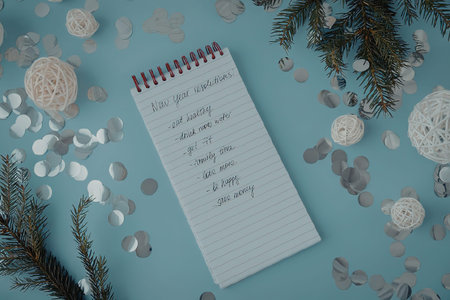 New year resolutions:
- eat healthy
- drink more water
- get fit
- family time
- love more
- be happy
- save money